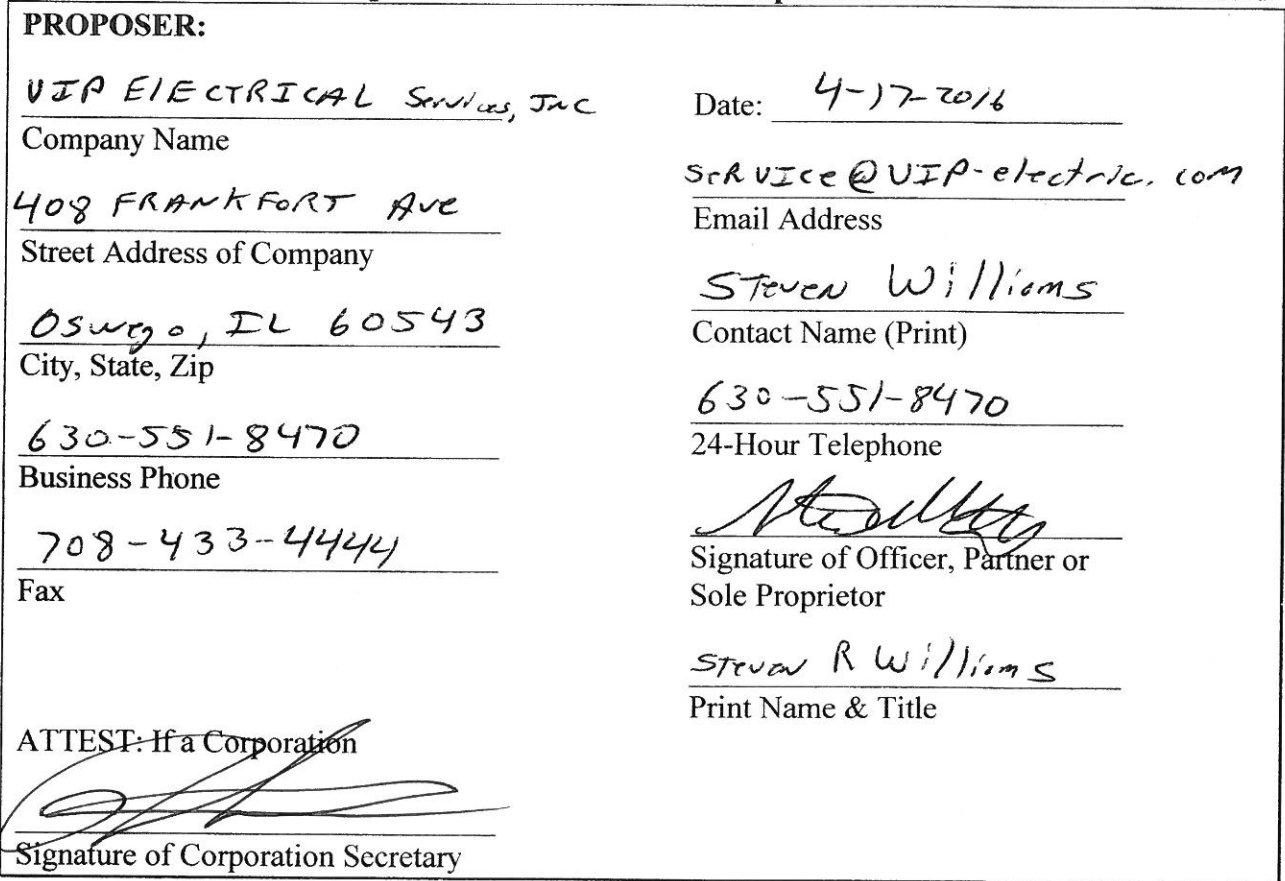 PROPOSER:
VIP ElECTRICAL Services, Inc
Company Name
408 FRANKFORT Ave
Street Address of Company
Oswego, IL 60543
City, State, Zip
630-551-8470
Business Phone
708-433-4444
Fax
ATTEST: If a Corporation
Signature of Corporation Secretary
Date: 4-17-2016
SeRVICe@VIP-electric.com
Email Address
Steven Williams
Contact Name (Print)
630-551-8470
24-Hour Telephone
Signature of Officer, Partner or
Sole Proprietor
Steven R Williams
Print Name & Title